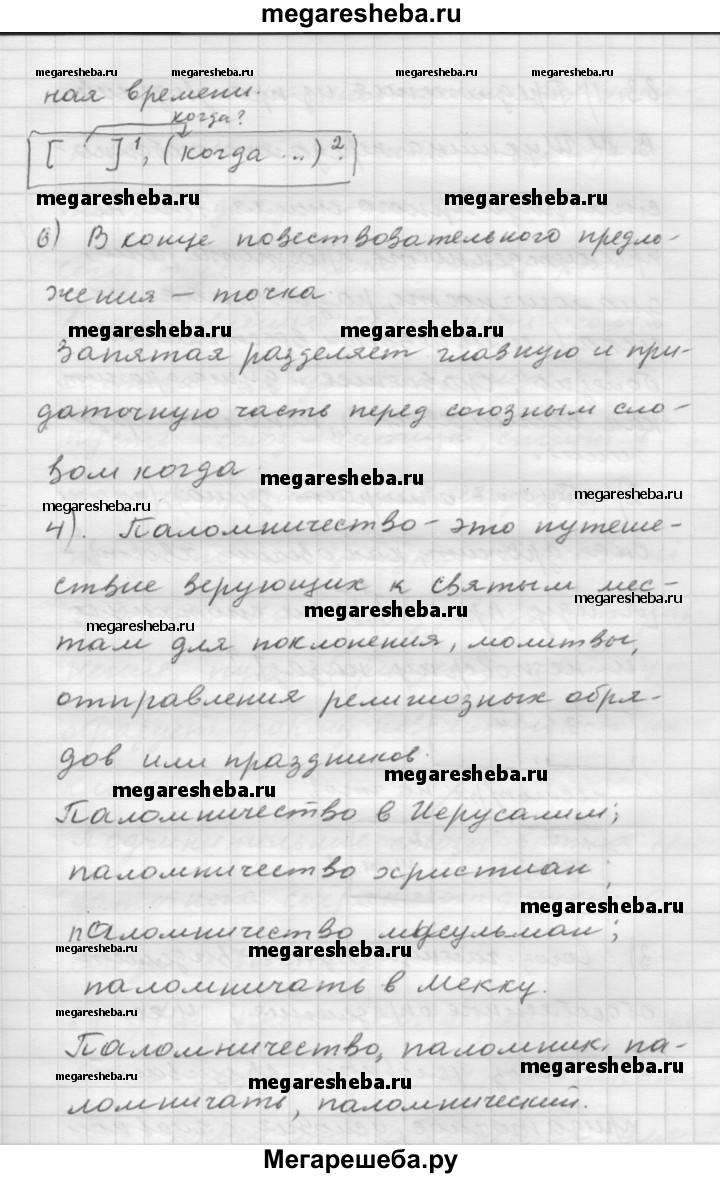 megaresheba.ru
megaresheba.ru megaresheba.ru megaresheba.ru megaresheba.ru
ная времени.
когда?
[ ]¹, (когда ...)².
megaresheba.ru megaresheba.ru
6) В конце повествовательного предло-
жения – точка.
megaresheba.ru megaresheba.ru
Запятая разделяет главную и при-
даточную часть перед союзным сло-
вом когда.
megaresheba.ru
megaresheba.ru
megaresheba.ru
4). Паломничество – это путеше-
ствие верующих к святым мес-
megaresheba.ru
megaresheba.ru
megaresheba.ru
там для поклонения, молитвы,
отправления религиозных обря-
дов или праздников.
megaresheba.ru
megaresheba.ru
Паломничество в Иерусалим;
паломничество христиан;
megaresheba.ru
паломничество мусульман;
megaresheba.ru
megaresheba.ru
паломничать в Мекку.
megaresheba.ru
Паломничество, паломник, па-
megaresheba.ru
megaresheba.ru
megaresheba.ru
ломничать, паломнический.
Мегарешеба.ру